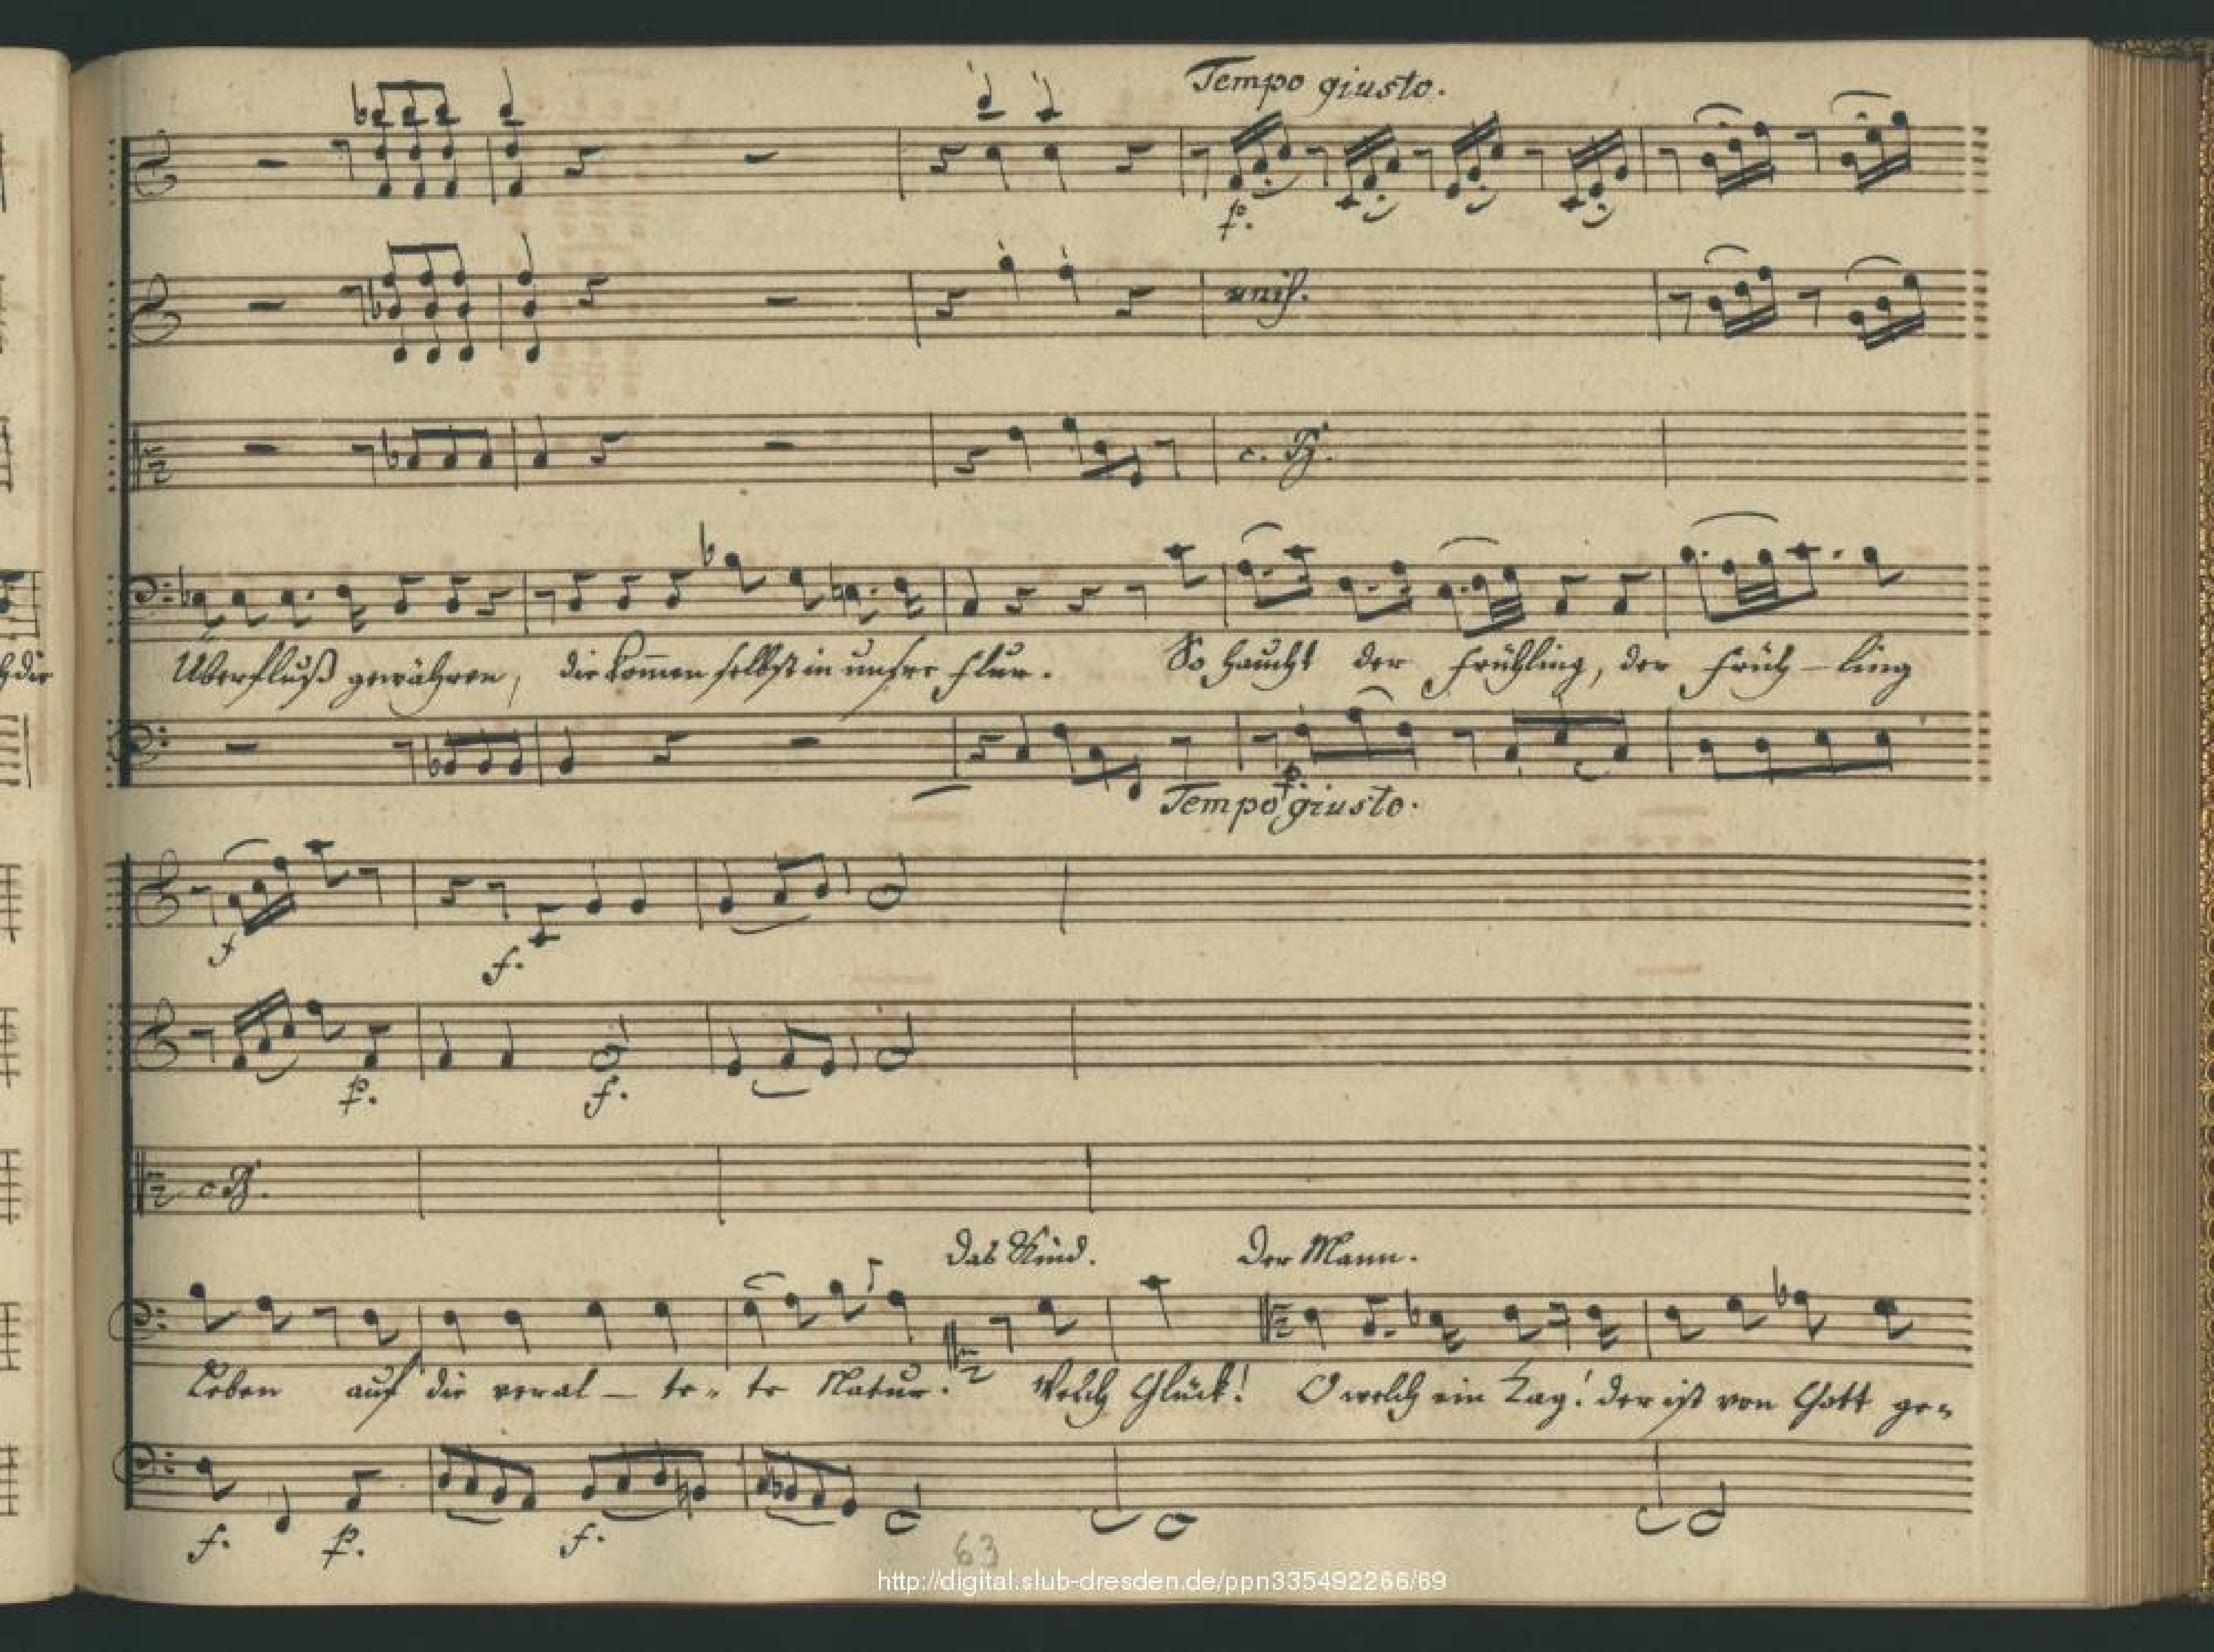 Tempo giusto.
p.
unis.
c. B.
die
Überfluß gewähren, die kommen selbst in unsre Flur. So haucht der Frühling, der Früh-ling
p.
Tempo giusto.
f
f.
p.
f.
c B.
das Kind. Der Mann.
Leben auf die veral-te-te Natur. Welch Glück! O welch ein Tag! der ist von Gott ge-
f. p. f.
63
http://digital.slub-dresden.de/ppn335492266/69